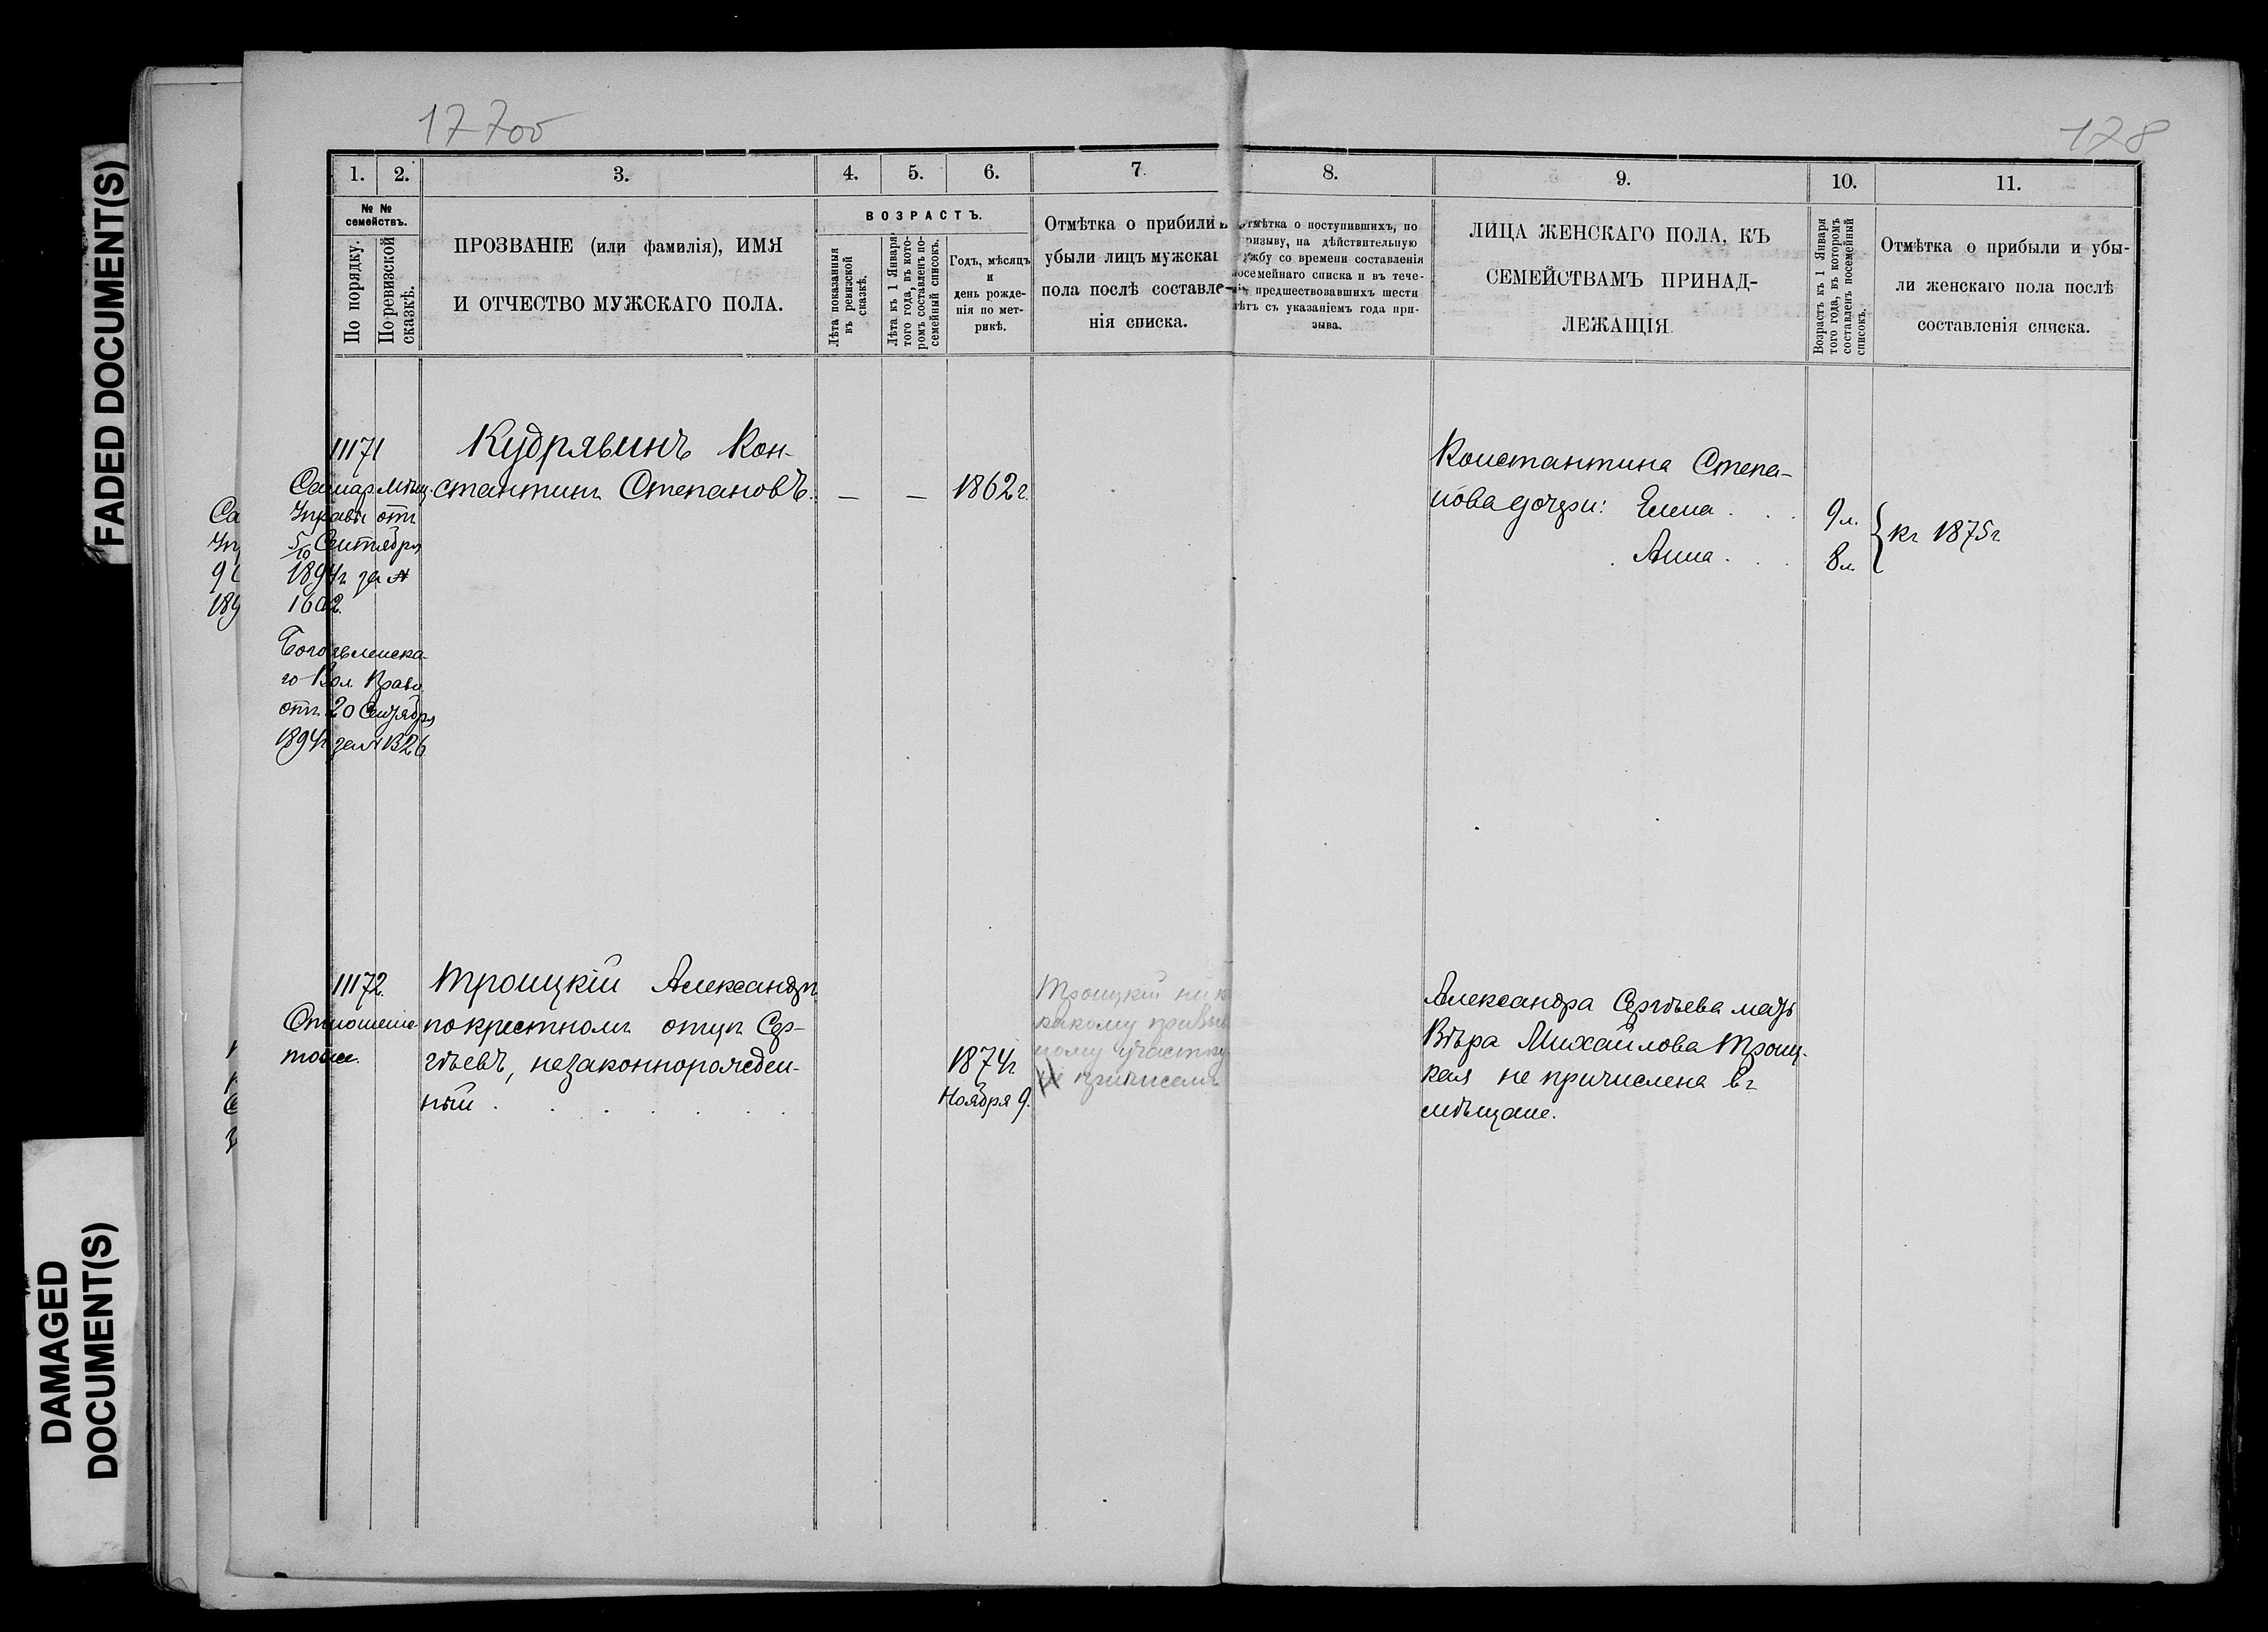 FADED DOCUMENT(S)
DAMAGED
DOCUMENT(S)
17700
178
1. 2. 3. 4. 5. 6. 7. 8. 9. 10. 11.
№ №
семействъ.
По порядку.
По ревизской
сказкѣ.
ПРОЗВАНІЕ (или фамилія), ИМЯ
И ОТЧЕСТВО МУЖСКАГО ПОЛА.
ВОЗРАСТЪ.
Лѣта показанныя
въ ревизской
сказкѣ.
Лѣта къ 1 Января
того года, въ кото-
ромъ составленъ по-
семейный списокъ.
Годъ, мѣсяцъ
и
день рожде-
нія по мет-
рикѣ.
Отмѣтка о прибили и
убыли лицъ мужскаг
пола послѣ составле-
нія списка.
Отмѣтка о поступившихъ, по
ризыву, на дѣйствительную
ужбу со времени составленія
посемейнаго списка и въ тече-
ніе предшествовавшихъ шести
лѣтъ съ указаніемъ года при-
зыва.
ЛИЦА ЖЕНСКАГО ПОЛА, КЪ
СЕМЕЙСТВАМЪ ПРИНАД-
ЛЕЖАЩІЯ.
Возрастъ къ 1 Января
того года, въ которомъ
составленъ посемейный
списокъ.
Отмѣтка о прибыли и убы-
ли женскаго пола послѣ
составленія списка.
11171
Самар. Мѣщ.
Управы отъ
5/10 Сентября
1894г за №
1602.
Богоявленска-
го Вол. Правл
отъ 20 Сентября
1894г за №1326
Са
Уп
9 С
189
Кудрявинъ Кон-
стантинъ Степановъ.
— — 1862г.
Константина Степа-
нова дочери: Елена . . 9л.
Анна . . 8л.
къ 1875г
11172.
Отношеніе
тоже.
Троицкій Александръ
по крестномъ отцѣ Сер-
гѣевъ, незаконнорожден-
ный . . . . . .
1874г
Ноября 9.
Троицкій ни к
какому призыв
ному участку
не приписанъ
Александра Сергѣева мать
Вѣра Михайлова Троиц-
кая не причислена въ
мѣщане.